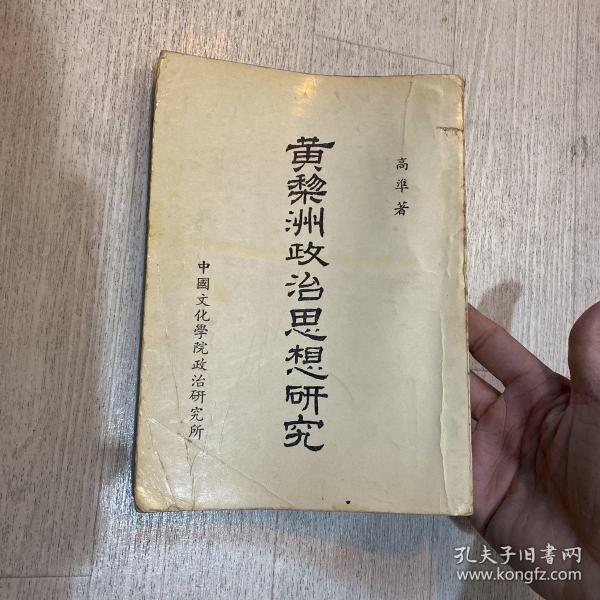 高準著
黄黎洲政治思想研究
中國文化學院政治研究所
孔夫子旧書网
www.kongfz.com